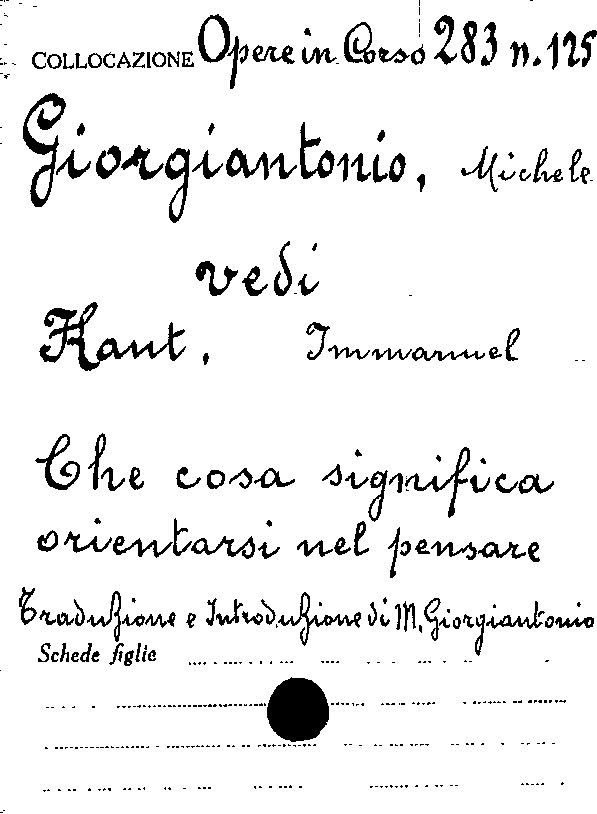 COLLOCAZIONE Opere in Corso 283 n. 125
Giorgiantonio, Michele
vedi
Kant, Immanuel
Che cosa significa
orientarsi nel pensare
Traduzione e Introduzione di M. Giorgiantonio
Schede figlie